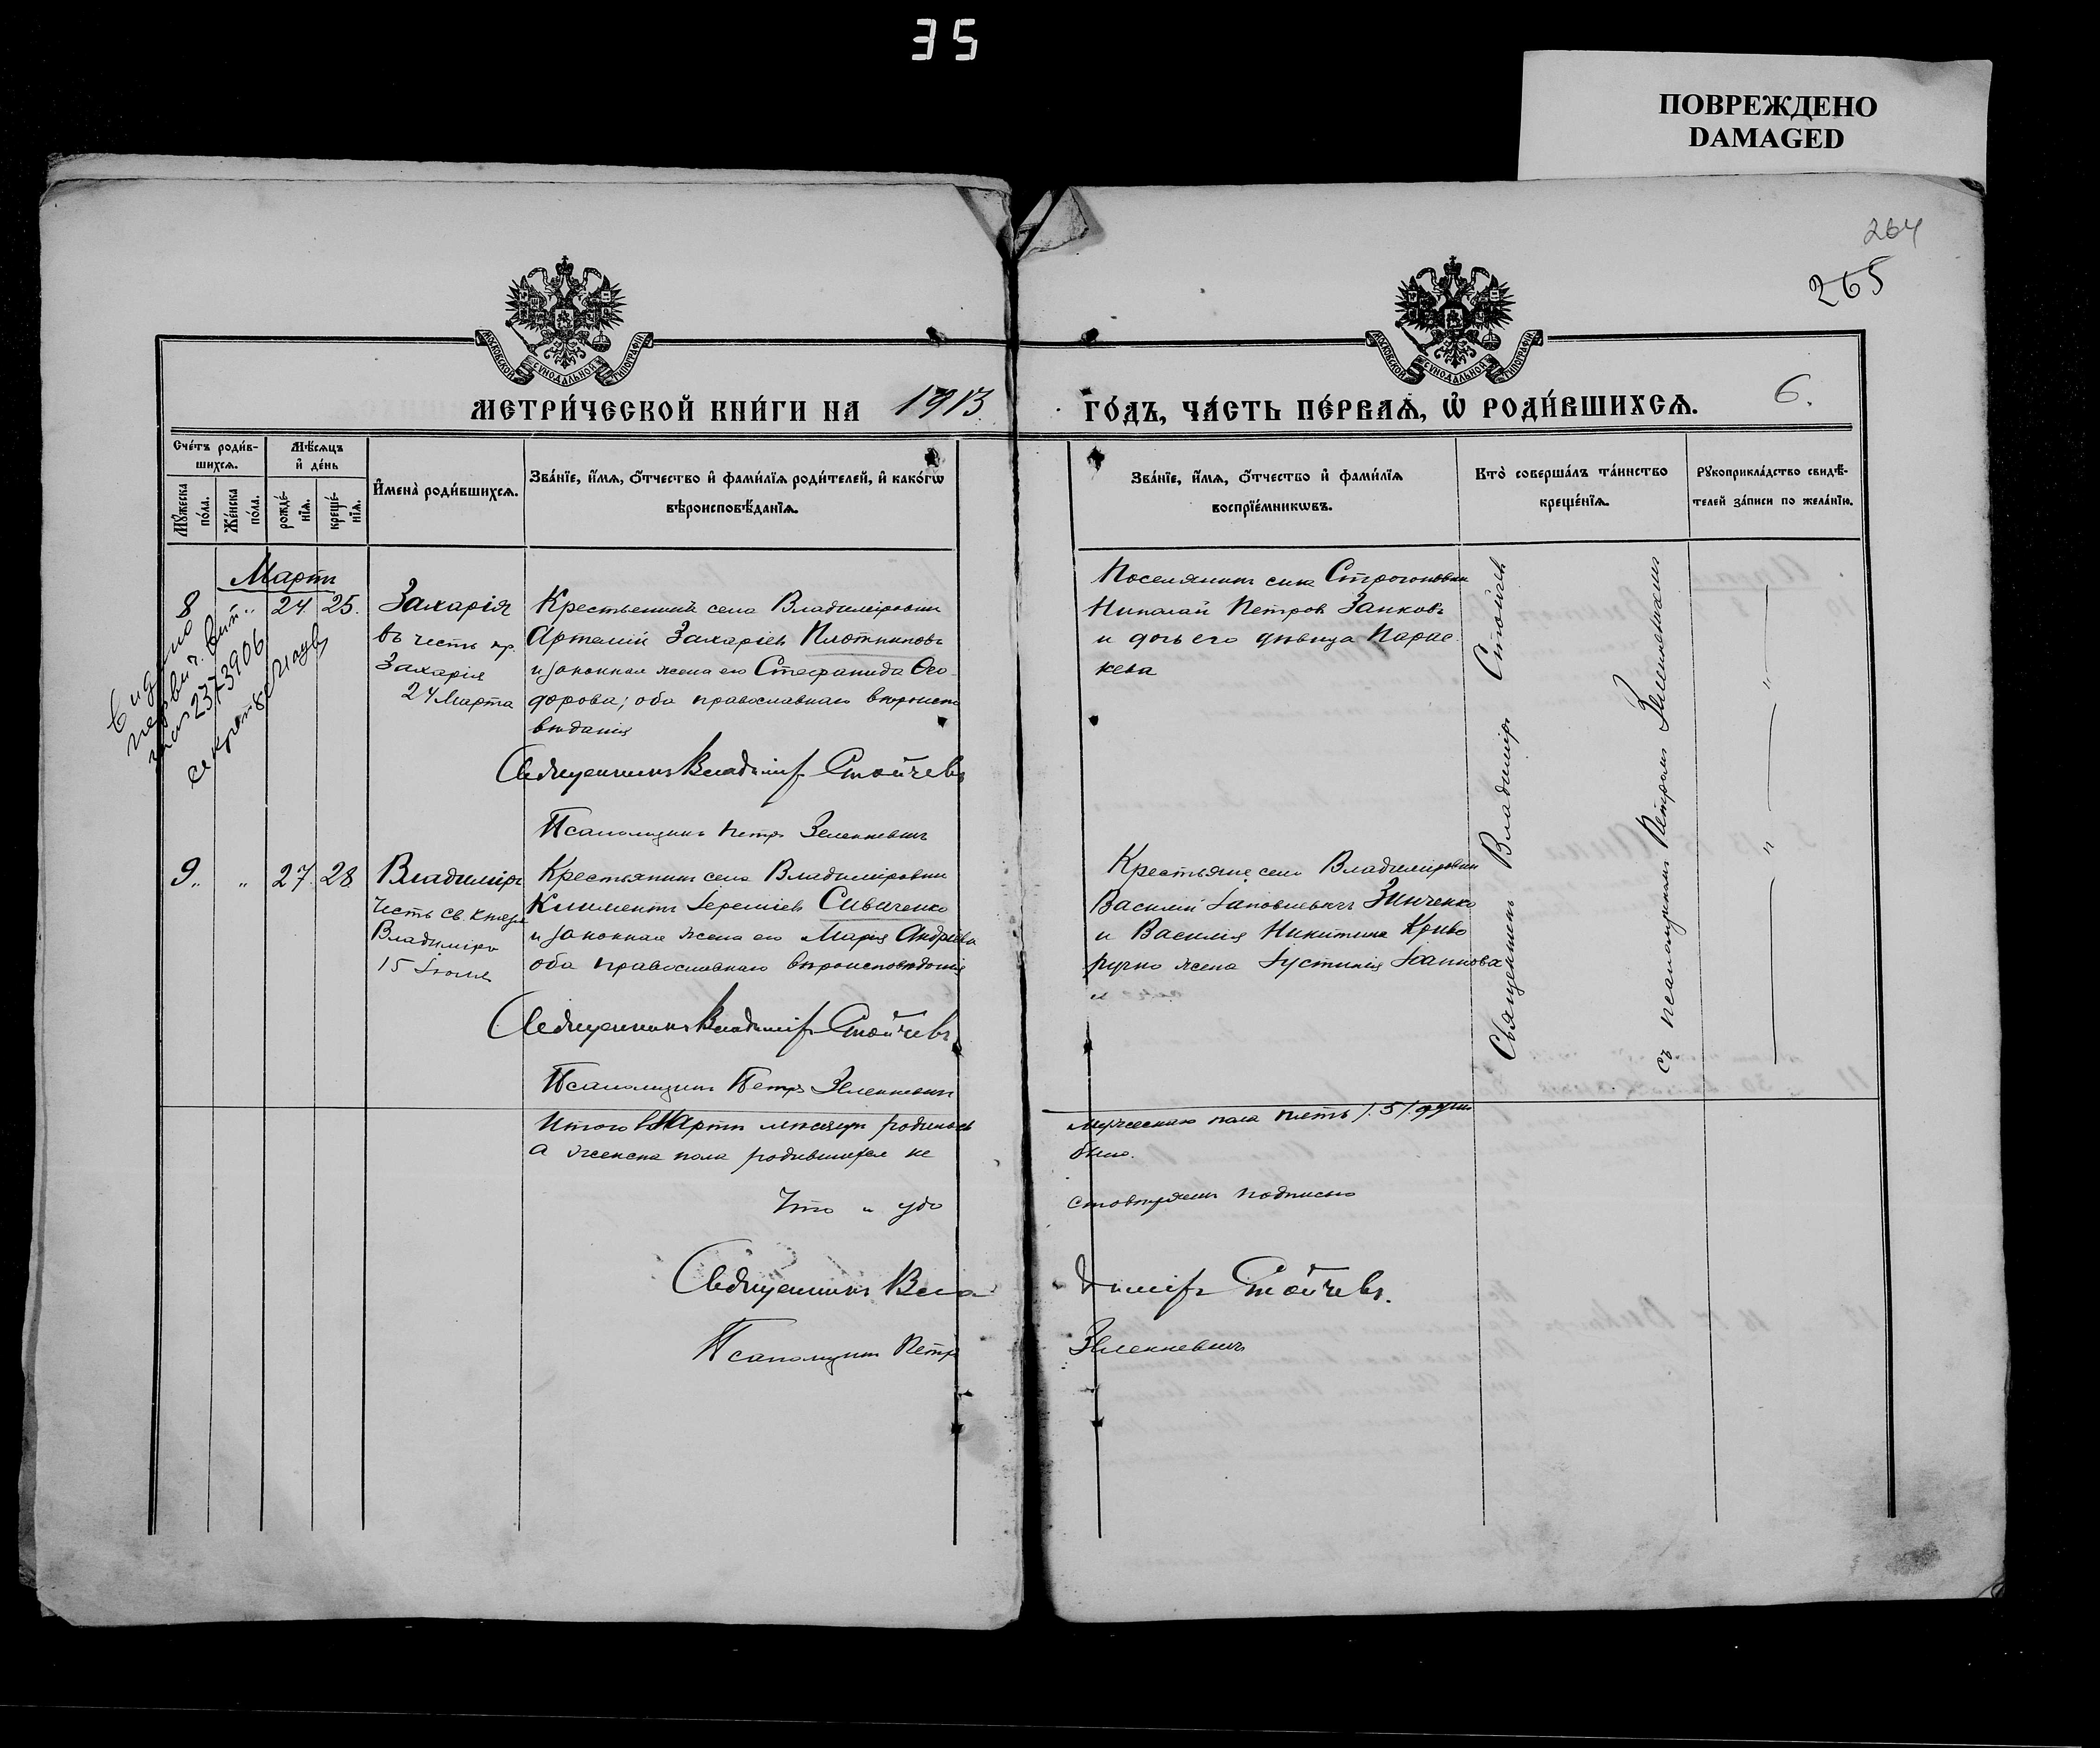 35
ПОВРЕЖДЕНО
DAMAGED
264
265
МОСКОВСКОЙ СѴНОДАЛЬНОЙ ТИПОГРАФІИ
МОСКОВСКОЙ СѴНОДАЛЬНОЙ ТИПОГРАФІИ
МЕТРИ́ЧЕСКОЙ КНИ́ГИ НА 1913.
ГО́ДЪ, ЧА́СТЬ ПЕ́РВАѦ, Ѡ҆ РОДИ́ВШИХСѦ.
6.
Сче́тъ роди́в-
шихсѧ.
Мѣ́сѧцъ
и҆ де́нь
Мꙋ́жеска
по́ла.
Же́нска
по́ла.
рожде́-
нїѧ.
креще́-
нїѧ.
И҆мена̀ роди́вшихсѧ.
Зва́нїе, и҆́мѧ, ѻ҆́тчество и҆ фами́лїѧ роди́телей, и҆ како́гѡ
вѣроисповѣ́данїѧ.
Зва́нїе, и҆́мѧ, ѻ҆́тчество и҆ фами́лїѧ
воспрїе́мникѡвъ.
Кто̀ соверша́лъ та́инство
креще́нїѧ.
Рꙋкоприкла́дство свидѣ́-
телей за́писи по жела́нїю.
Мартъ
8 " 24. 25.
Захарія
въ честь пр.
Захарія
24 Марта
Крестьянинъ села Владиміровки
Артемій Захаріевъ Плотниковъ
и законная жена его Стефанида Ѳео-
дорова; оба православнаго вѣроиспо
вѣданія
Священникъ Владиміръ Стойчевъ
Псаломщикъ Петръ Зелинкевичъ
Поселянинъ села Строгоновки
Николай Петровъ Занковъ
и дочь его дѣвица Парас-
кева
2373906
9. " 27. 28
Владиміръ
честь св. Князя
Владиміра
15 Іюля
Крестьянинъ села Владиміровки
Климентъ Іереміевъ Сиваченко
и законная жена его Марія Андреева
оба православнаго вѣроисповѣданія
Священникъ Владиміръ Стойчевъ
Псаломщикъ Петръ Зелинкевичъ
Крестьяне села Владиміровки
Василій Іаковлевичъ Зинченко
и Василія Никитина Криво
ручко жена Іустинія Іоаннова
Священникъ Владиміръ Стойчевъ
съ псаломщикомъ Петромъ Зелинкевичемъ
Итого въ Мартѣ мѣсяцѣ родилось
мужескаго пола пять /5/ душъ
а женска пола родившихся не
было.
Что и удо
стовѣряемъ подписью
Священникъ Вла
диміръ Стойчевъ.
Псаломщикъ Петръ
Зелинкевичъ